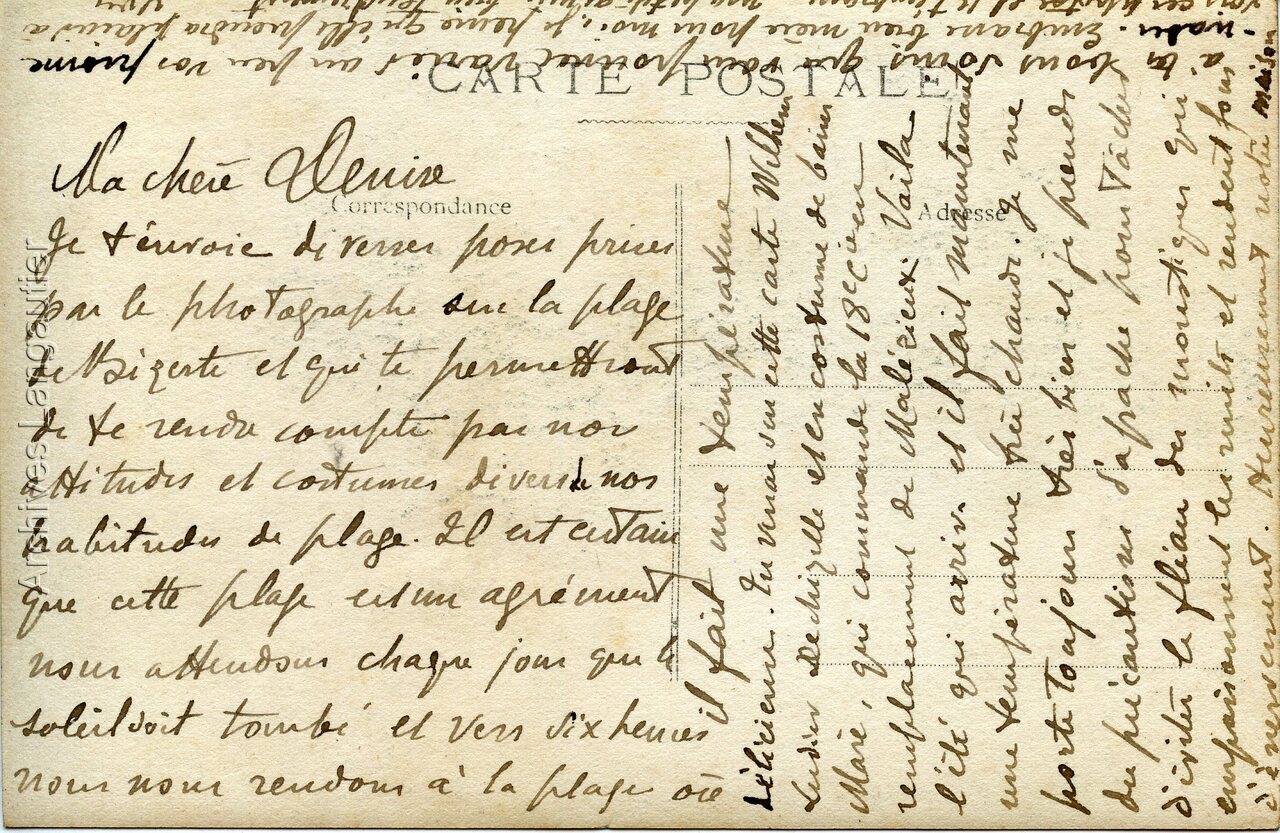 CARTE POSTALE
Correspondance
Adresse
Ma chère Denise
Je t'envoie diverses poses prises
par le photographe sur la plage
de Bizerte et qui te permettront
de te rendre compte par nos
attitudes et costumes divers de nos
habitudes de plage. Il est certain
que cette plage est un agrément
nous attendons chaque jour que le
soleil soit tombé et vers six heures
nous nous rendons à la plage où
il fait une température
délicieuse. Tu verras sur cette carte Wilhem
Ludier Dechizelle et en costume de bain
Maré, qui commande la 18e Cie en
remplacement de Malézieux. Voila
l'été qui arrive et il fait maintenant
une température très chaude. Je me
porte toujours très bien et je prends
des précautions d'apache pour tâcher
d'éviter le fléau des moustiques qui
empoisonnent les nuits et rendent fous
d'énervement. Heureusement notre maison
à tes bons soins que vous pouviez varier un peu vos
Embrasse bien mère pour moi; je pense qu'elle prendra plaisir à
voir ces photos et
Archives Langoutier